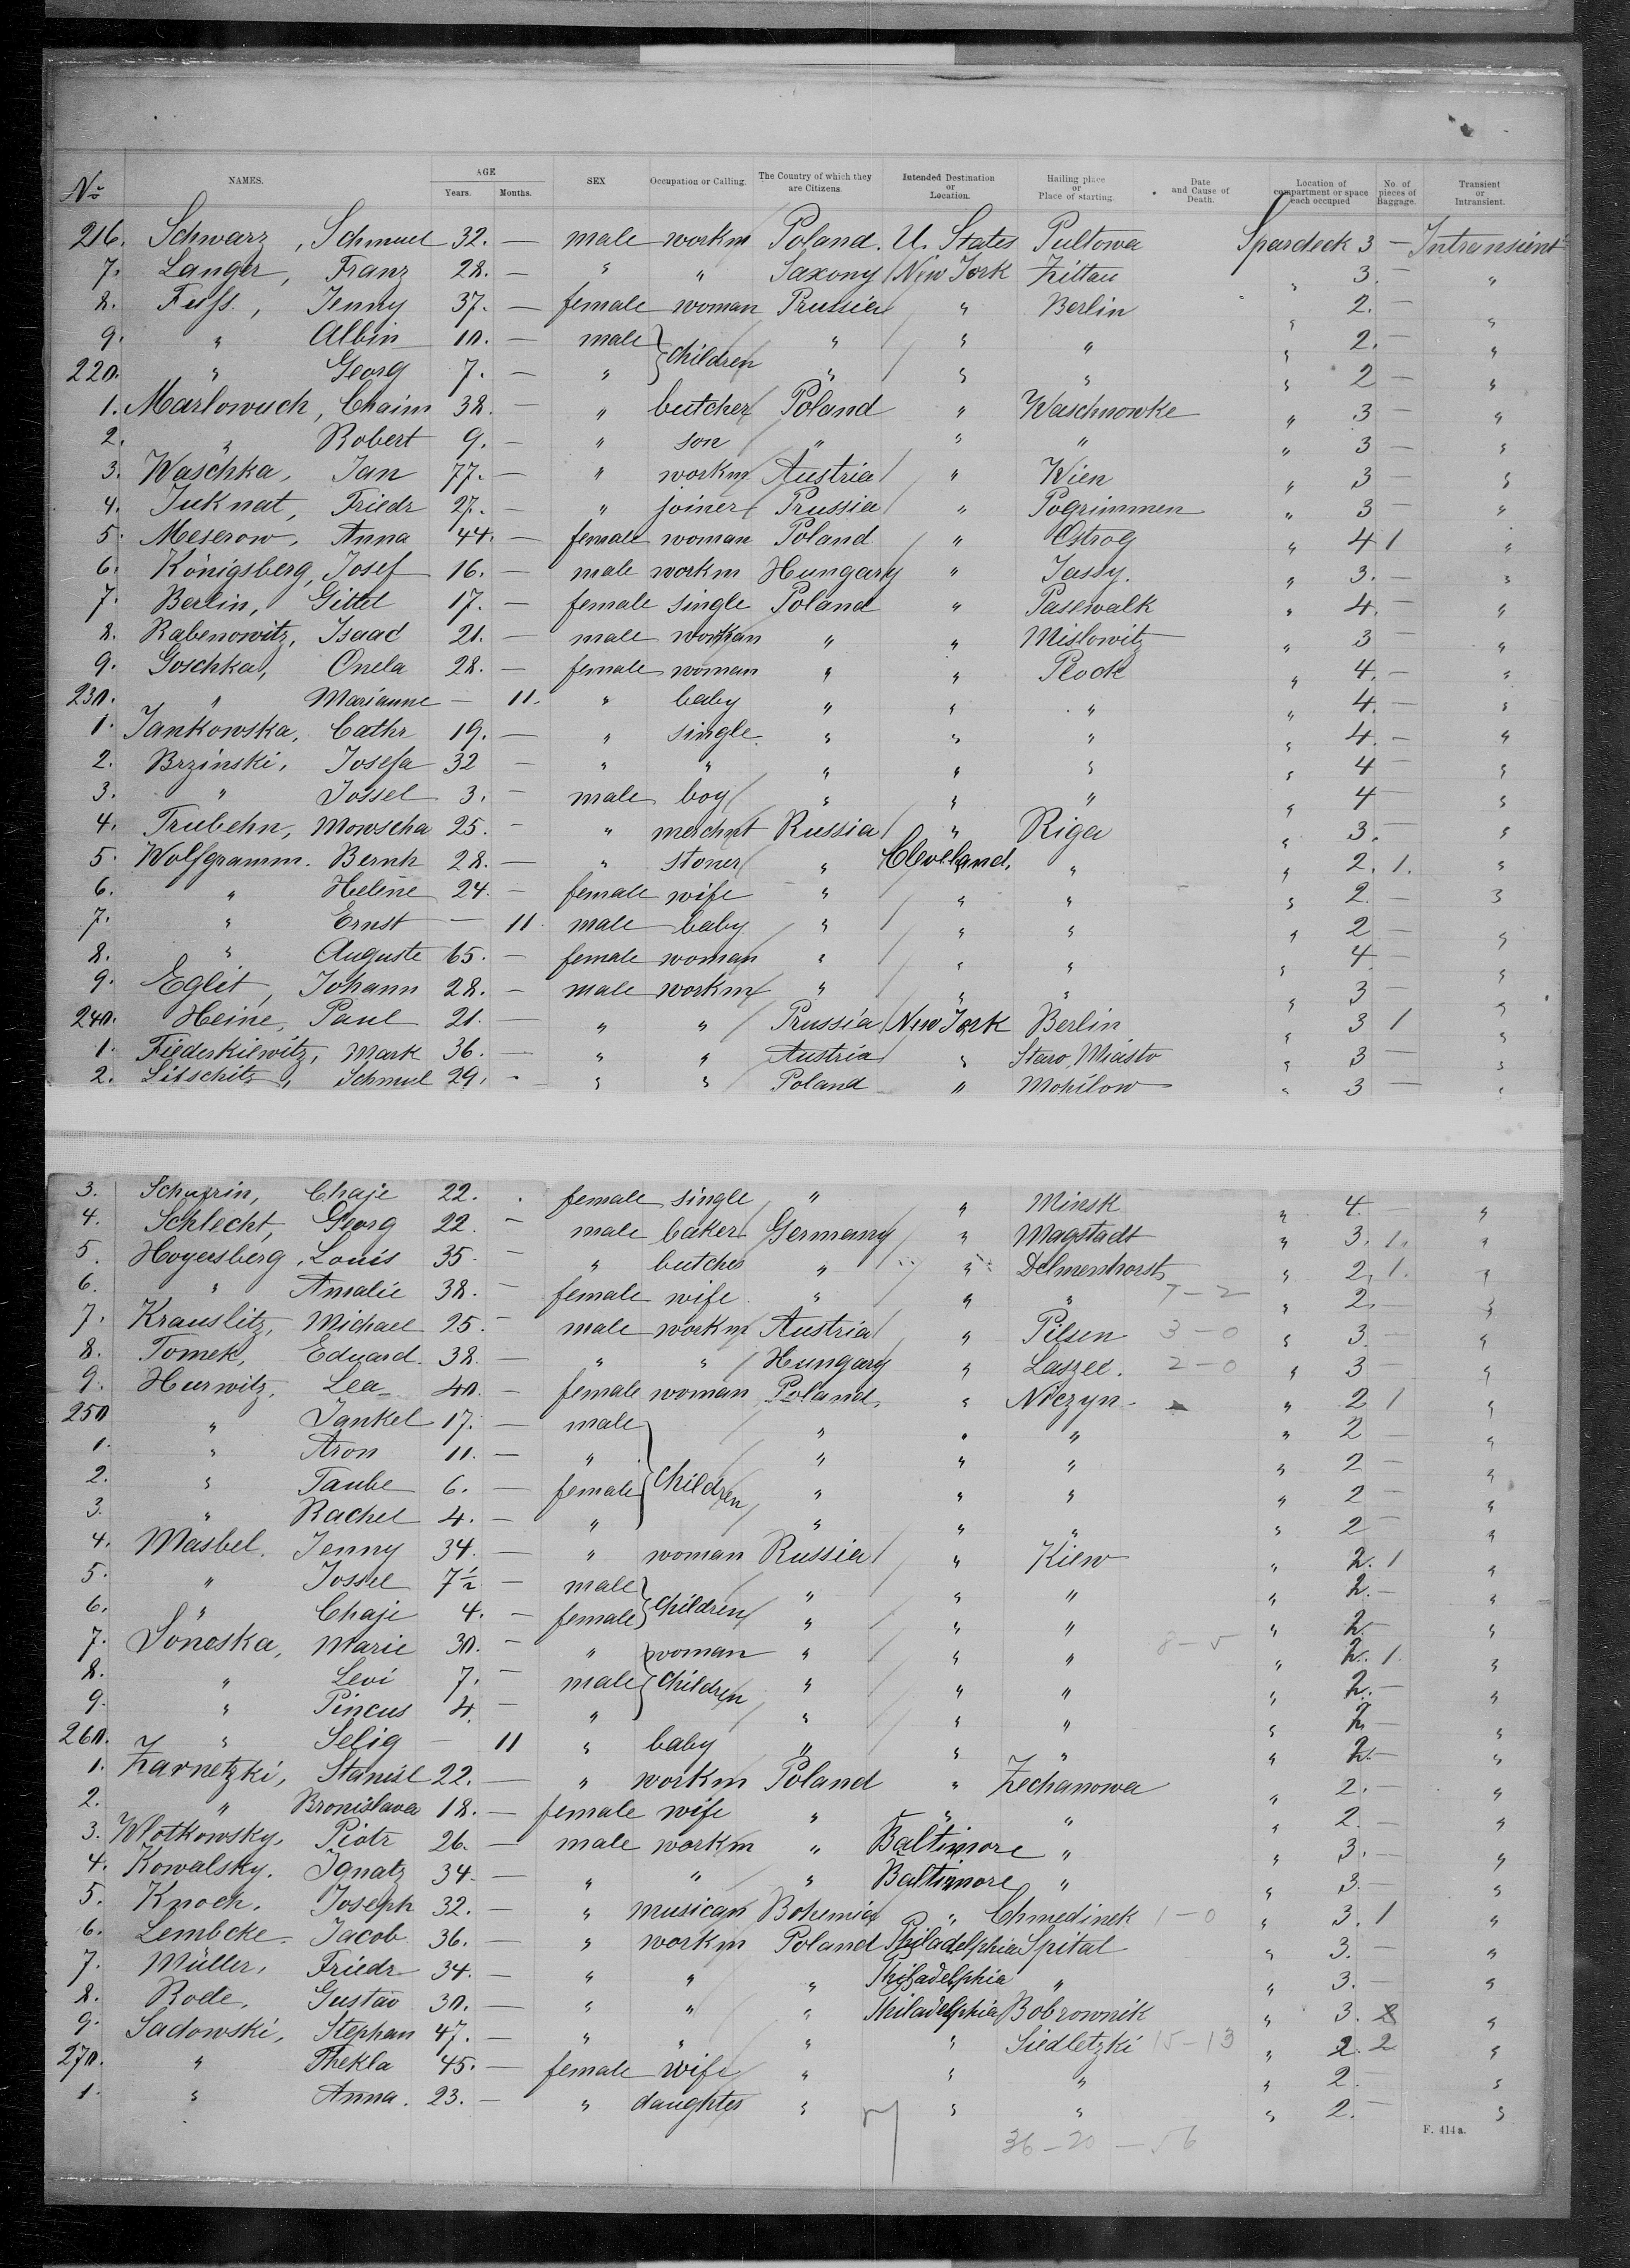 No NAMES. AGE Years. Months. SEX Occupation or Calling. The Country of which they are Citizens. Intended Destination or Location. Hailing place or Place of starting. Date and Cause of Death. Location of compartment or space each occupied No. of pieces of Baggage. Transient or Intransient.
216. Schwarz, Schmuel 32. — male workm Poland. U. States Pultowa Spardeck 3 — Intransient
7. Langer, Franz 28. — " " Saxony New York Zittau " 3. — "
8. Fuss, Jenny 37. — female woman Prussia " Berlin " 2. — "
9. " Albin 10. — male } children " " " " 2. — "
220. " Georg 7. — " " " " " 2 — "
1. Marlowuch, Chaim 38. — " butcher Poland " Waschnowke " 3 — "
2. " Robert 9. — " son " " " " 3 — "
3. Waschka, Jan 77. — " workm Austria " Wien " 3 — "
4. Juknat, Friedr 27. — " joiner Prussia " Pogrimmen " 3 — "
5. Meserow, Anna 44. — female woman Poland " Ostrog " 4 1 "
6. Königsberg, Josef 16. — male workm Hungary " Jassy. " 3. — "
7. Berlin, Gittel 17. — female single Poland " Pasewalk " 4. — "
8. Rabenowitz, Isaac 21. — male workman " " Mislowitz " 3 — "
9. Goschka, Onela 28. — female woman " " Plock " 4. — "
230. " Marianne — 11. " baby " " " " 4. — "
1. Jankowska, Cathr 19. — " single. " " " " 4. — "
2. Brzinski, Josefa 32 — " " " " " " 4 — "
3. " Jossel 3. — male boy " " " " 4 — "
4. Trubehn, Mowscha 25. — " merchnt Russia " Riga " 3. — "
5. Wolfgramm. Bernh 28. — " stoner " Cleveland, " " 2. 1. "
6. " Helene 24. — female wife " " " " 2. — "
7. " Ernst — 11 male baby " " " " 2 — "
8. " Auguste 65. — female woman " " " " 4 — "
9. Eglit, Johann 28. — male workm " " " " 3 — "
240. Heine, Paul 21. — " " Prussia New York Berlin " 3 1 "
1. Fiederkiewitz, Mark 36. — " " Austria " Staro Miasto " 3 — "
2. Litschitz, Schmul 29. - " " Poland " Mohilow " 3 — "
3. Schufrin, Chaje 22. . female single " " Minsk " 4. — "
4. Schlecht, Georg 22. — male baker Germany " Magstadt " 3. 1. "
5. Hoyersberg, Louis 35. — " butcher " " Delmenhorst " 2. 1. "
6. " Amalie 38. — female wife " " " 7-2 " 2. — "
7. Krauslitz, Michael 25. — male workm Austria " Pilsen 3-0 " 3. — "
8. Tomek, Eduard. 38. — " " Hungary " Laszec. 2-0 " 3 — "
9. Hurwitz, Lea 40. — female woman Poland " Niczyn. " 2 1 "
250 " Jankel 17. — male } children " " " " 2 — "
1. " Aron 11. — " " " " " 2 — "
2. " Taube 6. — female " " " " 2 — "
3. " Rachel 4. — " " " " " 2 — "
4. Masbel. Jenny 34. — " woman Russia " Kiew " 2. 1 "
5. " Jossel 7½ — male } children " " " " 2. — "
6. " Chaje 4. — female " " " " 2. — "
7. Sonoska, Marie 30. — " woman " " " 8-5 " 2. 1. "
8. " Levi 7. — male } children " " " " 2. — "
9. " Pincus 4. — " " " " " 2 — "
260. " Selig — 11 " baby " " " " 2. — "
1. Zarnetzki, Stanisl 22. — " workm Poland " Zechanowa " 2. — "
2. " Bronislava 18. — female wife " " " " 2. — "
3. Wlotkowsky, Piotr 26. — male workm " Baltimore " " 3. — "
4. Kowalsky. Ignatz 34. — " " " Baltimore " " 3. — "
5. Knoch. Joseph 32. — " musican Bohemia " Chmedinek 1-0 " 3. 1 "
6. Lembcke. Jacob 36. — " workm Poland Philadelphia Spital " 3. — "
7. Müller, Friedr 34. — " " " Philadelphia " " 3. — "
8. Rode, Gustav 30. — " " " Philadelphia Bobrownik " 3. "
9. Sadowski, Stephan 47. — " " " " Siedletzki 15-13 " 2. 2 "
270. " Thekla 45. — female wife " " " " 2. — "
1. " Anna. 23. — " daughter " " " " 2. — "
36-20-56
F. 414a.